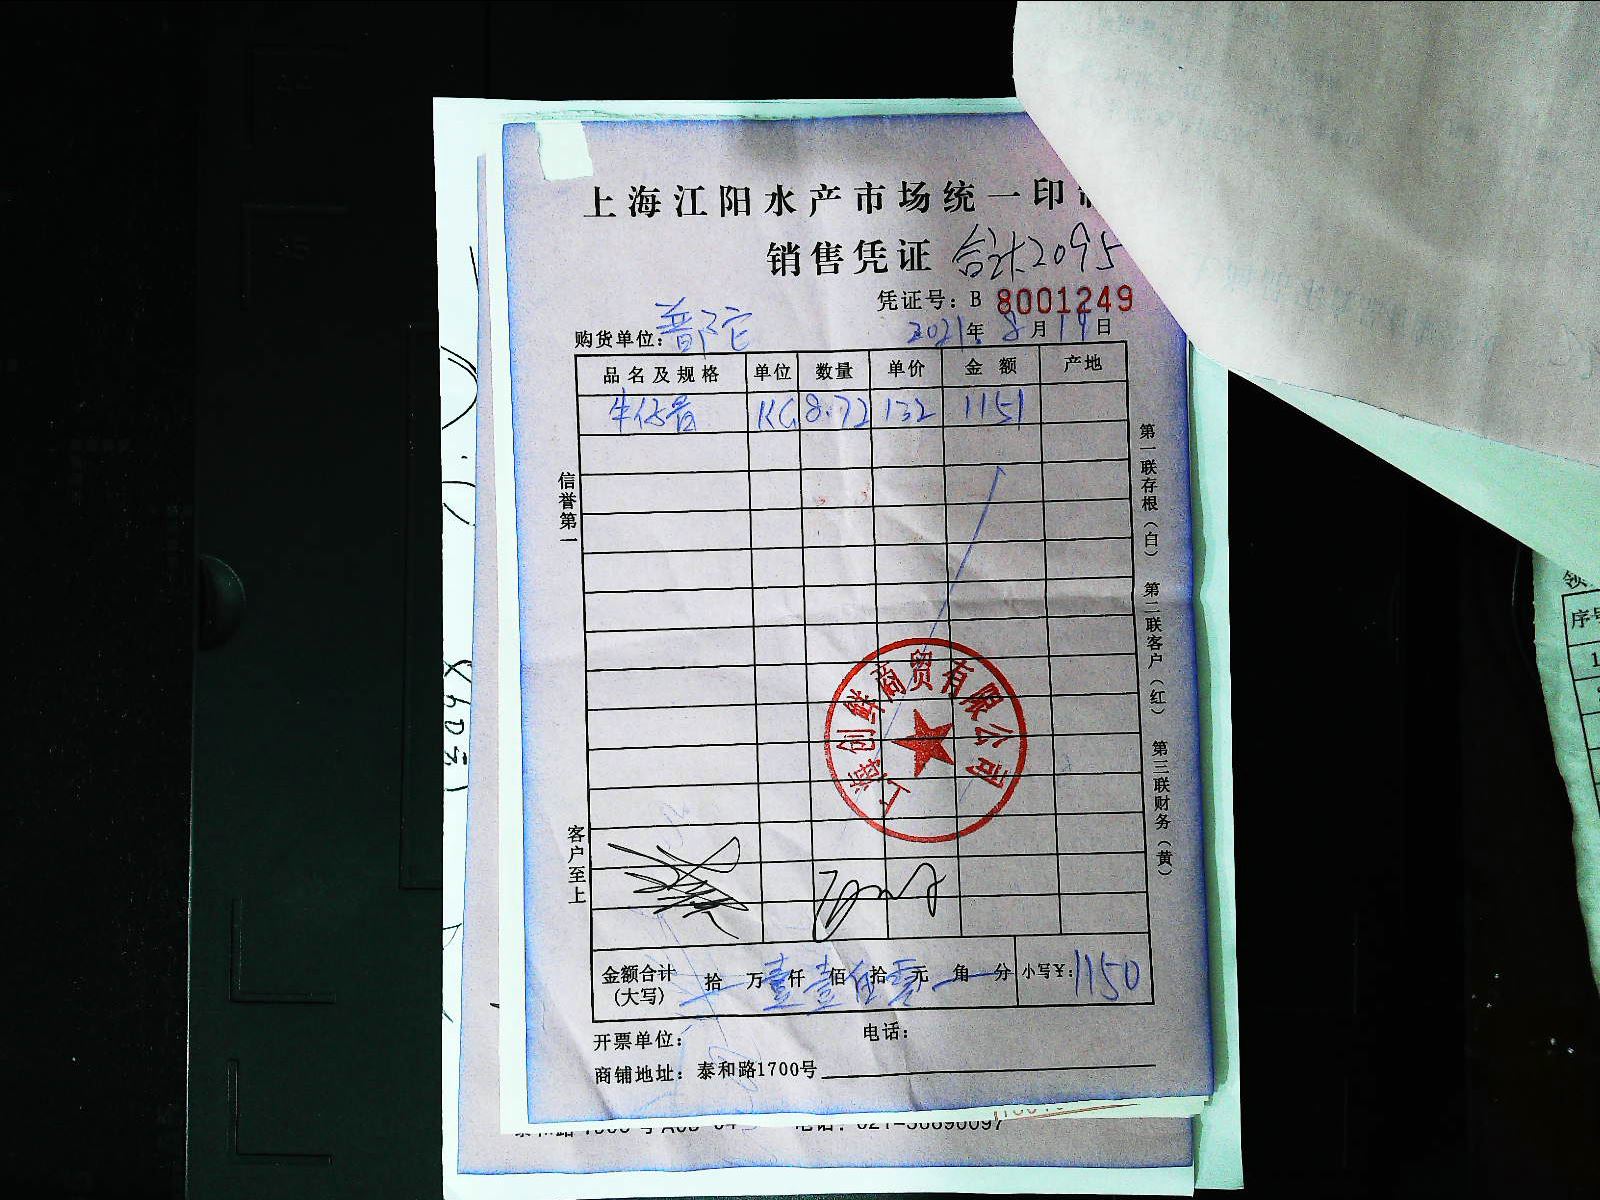 上海江阳水产市场统一印
销售凭证 合计2095
凭证号：B 8001249
购货单位：普陀 2021年8月19日
品名及规格 单位 数量 单价 金额 产地
牛仔骨 KG 8.72 132 1151
信誉第一
客户至上
第一联存根（白） 第二联客户（红） 第三联财务（黄）
上海创鲜商贸有限公司
金额合计（大写） 拾 万 壹仟 壹佰 伍拾 零元 角 分 小写¥：1150
开票单位： 电话：
商铺地址：泰和路1700号
电话：021-56690097
序号